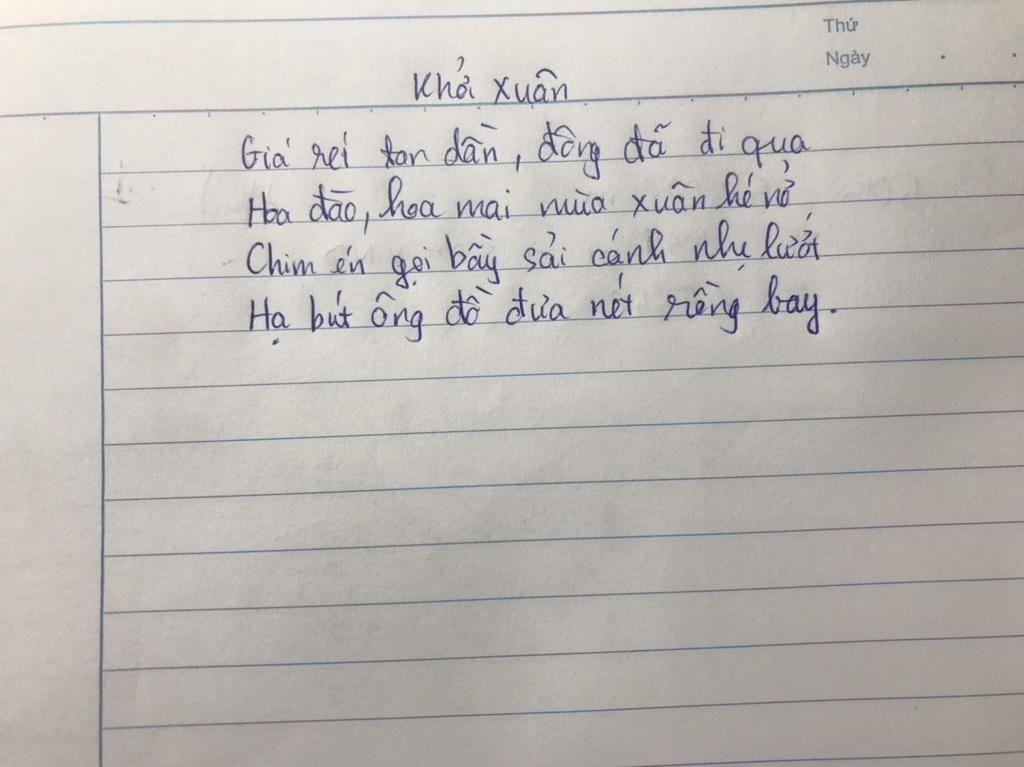 Thứ
Ngày
Khởi Xuân
Giá rét tan dần, đông đã đi qua
Hoa đào, hoa mai mùa xuân hé nở
Chim én gọi bầy sải cánh nhẹ lướt
Hạ bút ông đồ đưa nét rồng bay.